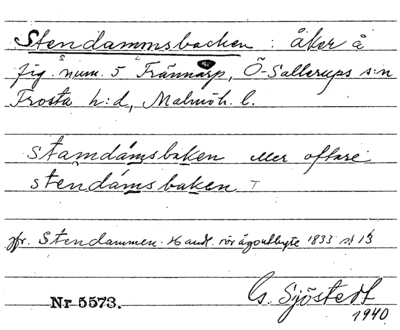 Stendammsbacken : åker å
fig. num. 5 Trännarp, Ö-Sallerups s:n
Frosta h:d, Malmöh. l.
stamdámsbaken eller oftare
stendámsbaken
jfr. Stendammen. Handl. rör ägoutbyte 1833 s 13
Nr 5573.
G. Sjöstedt
1940